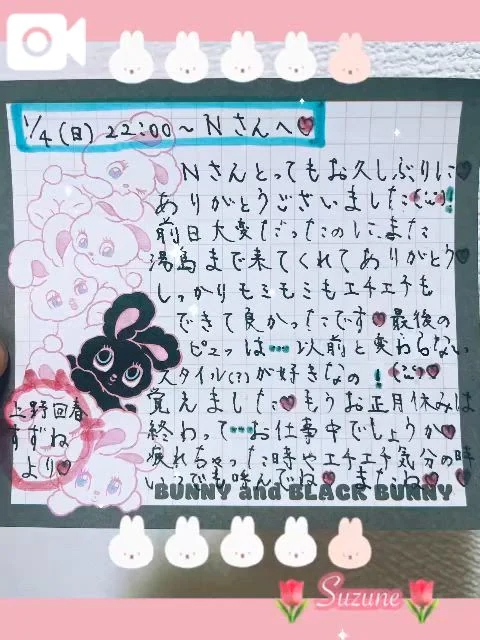 1/4(日) 22:00~Nさんへ♥
Nさんとってもお久しぶりに♥
ありがとうございました(¨)!
前日大変だったのにまた
湯島まで来てくれてありがとう♥
しっかりモミモミもエチエチも
できて良かったです♥最後の
ピュッは…以前と変わらない
スタイル(?)が好きなの!(¨)♥
覚えました♥もうお正月休みは
終わって…お仕事中でしょうか♥
疲れちゃった時やエチエチ気分の時
いつでも呼んでね♥またね♥♥
上野回春
すずね
より♥
BUNNY and BLACK BUNNY
Suzune